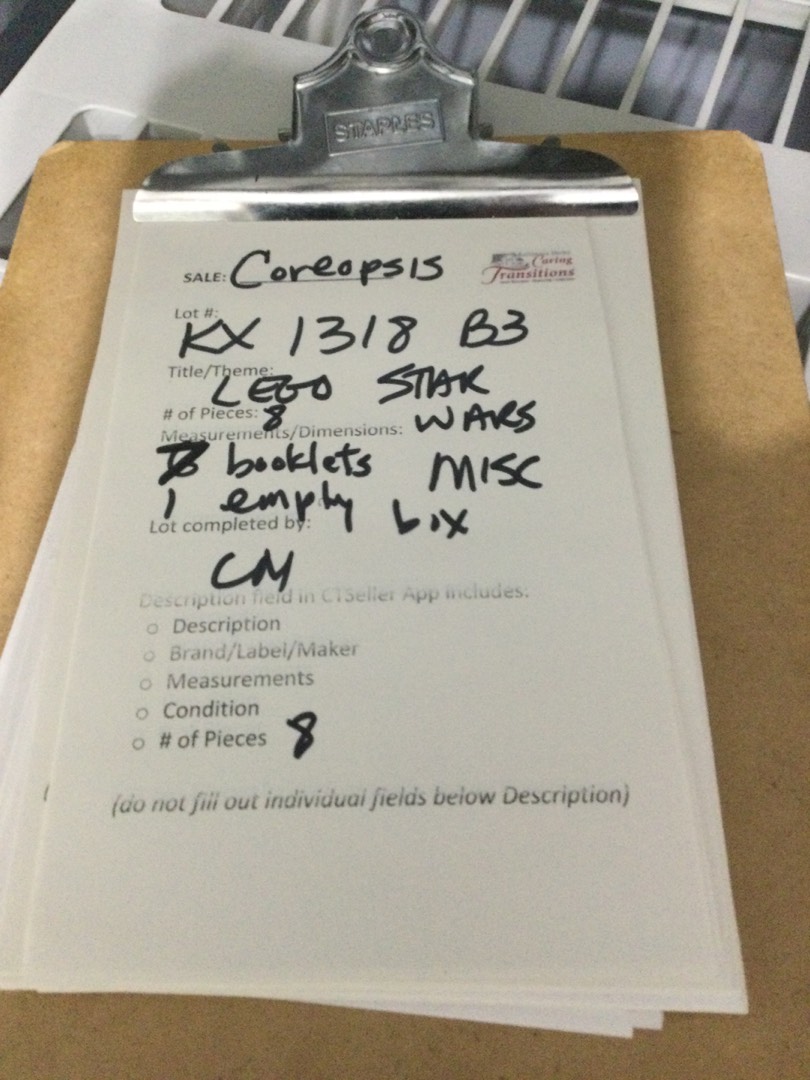 STAPLES
SALE: Coreopsis
Caring
Transitions
Lot #:
KX 1318 B3
Title/Theme:
LEGO STAR
# of Pieces: 8 WARS
Measurements/Dimensions:
booklets MISC
1 empty box
Lot completed by:
CM
Description field in CTSeller App includes:
o Description
o Brand/Label/Maker
o Measurements
o Condition
o # of Pieces 8
(do not fill out individual fields below Description)